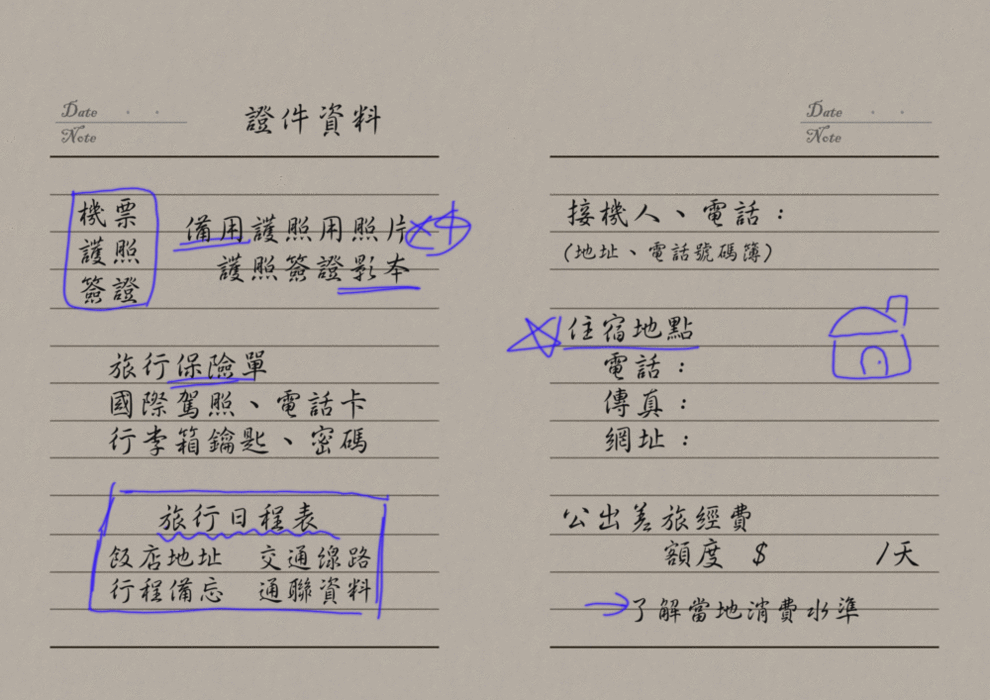 Date . .
Note
證件資料
機票
護照
簽證
備用護照用照片×4
護照簽證影本
旅行保險單
國際駕照、電話卡
行李箱鑰匙、密碼
旅行日程表
飯店地址 交通線路
行程備忘 通聯資料
Date . .
Note
接機人、電話：
(地址、電話號碼簿)
住宿地點
電話：
傳真：
網址：
公出差旅經費
額度 $ /天
→了解當地消費水準